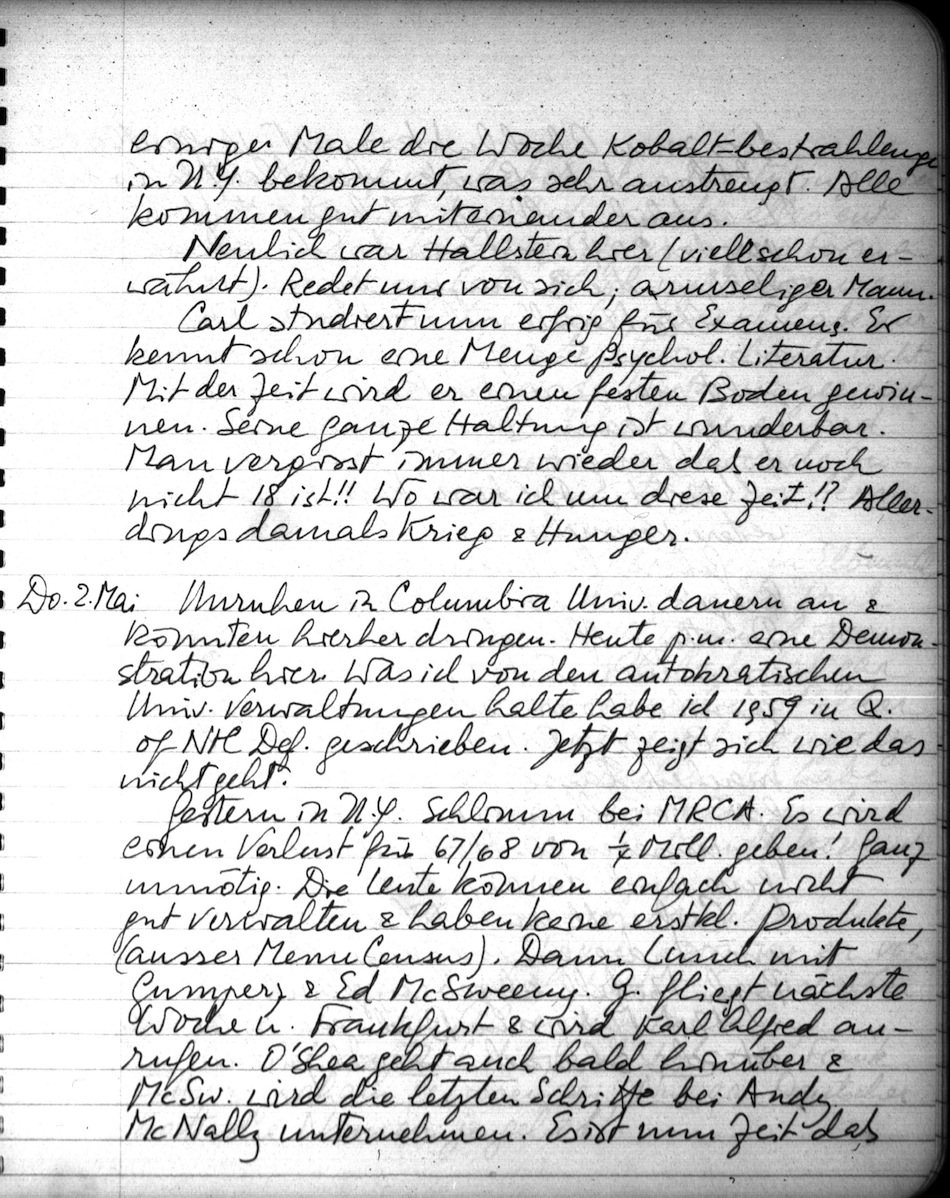 einiger Male die Woche Kobaltbestrahlunge
in N.Y. bekommt, was sehr anstrengt. Alle
kommen gut miteinander aus.
Neulich war Hallstein hier (viell schon er-
wähnt). Redet nur von sich; armseliger Mann.
Carl studiert nun eifrig für Examens. Er
kennt schon eine Menge psychol. Literatur.
Mit der Zeit wird er einen festen Boden gewin-
nen. Seine ganze Haltung ist wunderbar.
Man vergisst immer wieder daß er noch
nicht 18 ist!! Wo war ich um diese Zeit!? Aller-
dings damals Krieg & Hunger.
Do. 2. Mai Unruhen in Columbia Univ. dauern an &
könnten hierher dringen. Heute p.m. eine Demon-
stration hier. Was ich von den autokratischen
Univ. Verwaltungen halte habe ich 1959 in Q.
of NH Def. geschrieben. Jetzt zeigt sich wie das
nicht geht.
Gestern in N.Y. Schlimm bei MRCA. Es wird
einen Verlust für 67/68 von ¼ Mill. geben! Ganz
unnötig. Die Leute können einfach nicht
gut verwalten & haben keine erstkl. Produkte,
(ausser Menu Census). Dann Lunch mit
Gumperz & Ed McSweeny. G. fliegt nächste
Woche n. Frankfurt & wird Karl Alfred an-
rufen. O'Shea geht auch bald hinüber &
McSw. wird die letzten Schritte bei Andy
McNally unternehmen. Es ist nun Zeit daß